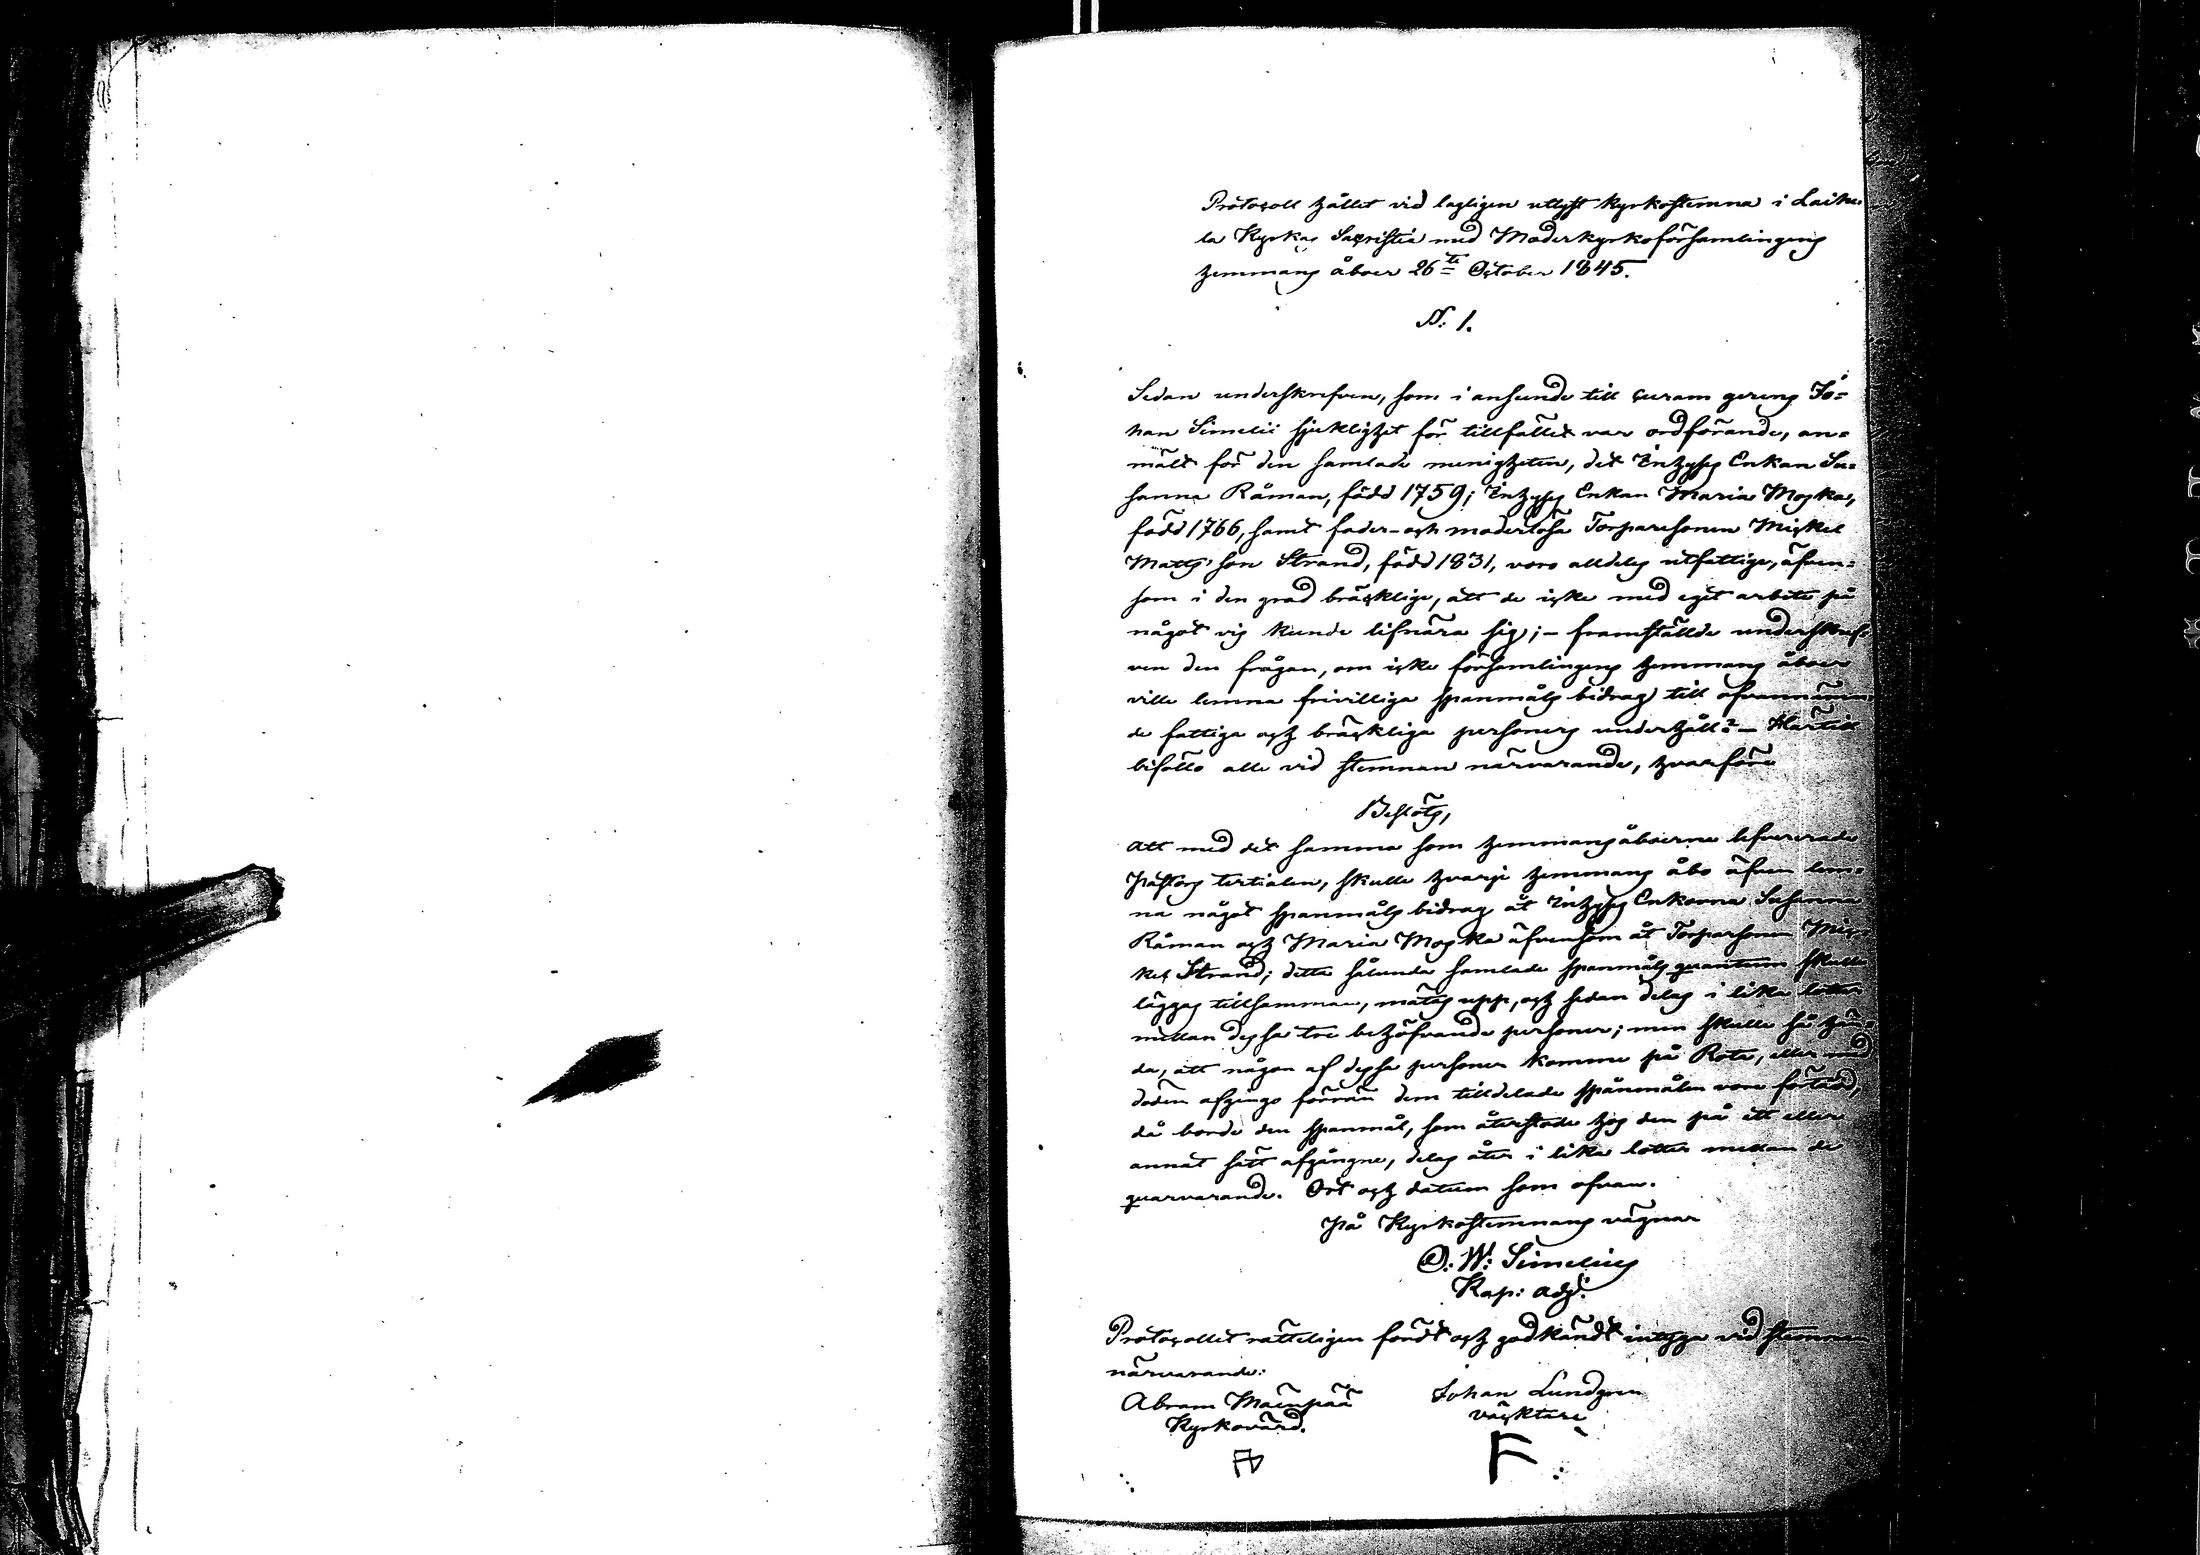 Protocoll hållet vid lagligen utlyst kyrkostemna i Laihe-
la Kyrkas Sacristia med Moderkyrkoförsamlingens
hemmans åboer 26te October 1845.
N: 1.
Sedan underskrefven, som i anseende till curam gerens Jo=
han Simelii sjuklighet för tillfället var ordförande, an=
mält för den samlade menigheten, det Inhyses Enkan Su=
sanna Råman, född 1759; Inhyses Enkan Maria Moska,
född 1766, samt fader- och moderlösa Torparesonen Mickel
Matts'son Strand, född 1831, voro alldeles utfattige, äfven=
som i den grad bräcklige, att de icke med eget arbete på
något vis kunde lifnära sig; – framställde underskref-
ven den frågan, om icke församlingens hemmans åboer
ville lemna frivilliga spanmåls bidrag till ofvannämn
de fattiga och bräckliga personers underhåll? – Härtill
biföllo alle vid stemnan närvarande, hvarföre
Beslöts,
att med det samma som hemmansåboerne lefvererade
Pastors tertialen, skulle hvarje hemmans åbo äfven lem=
na något spanmåls bidrag åt Inhyses Enkorna Susanna
Råman och Maria Moska äfvensom åt Torparsonen Mic-
kel Strand; detta sålunda samlade spanmåls quantum skulle
läggas tillsamman, mätas upp, och sedan delas i lika lotter
mellan dessa tre behöfvande personer; men skulle så hän=
da, att någon af dessa personer komme på Rote, eller med
döden afginge förrän dem tilldelade spanmålen vore förtärd,
då borde den spanmål, som återstode hos den på ett eller
annat sätt afgångne, delas åter i lika lotter mellan de
quarvarande. Ort och datum som ofvan.
På Kyrkostemnans vägnar
O. W: Simelius
Kap: adj.
Protocollet rätteligen fördt och godkändt intyga vid stemnan
närvarande:
Abram Mäenpää Johan Lundgren
Kyrkovärd. väcktare
F